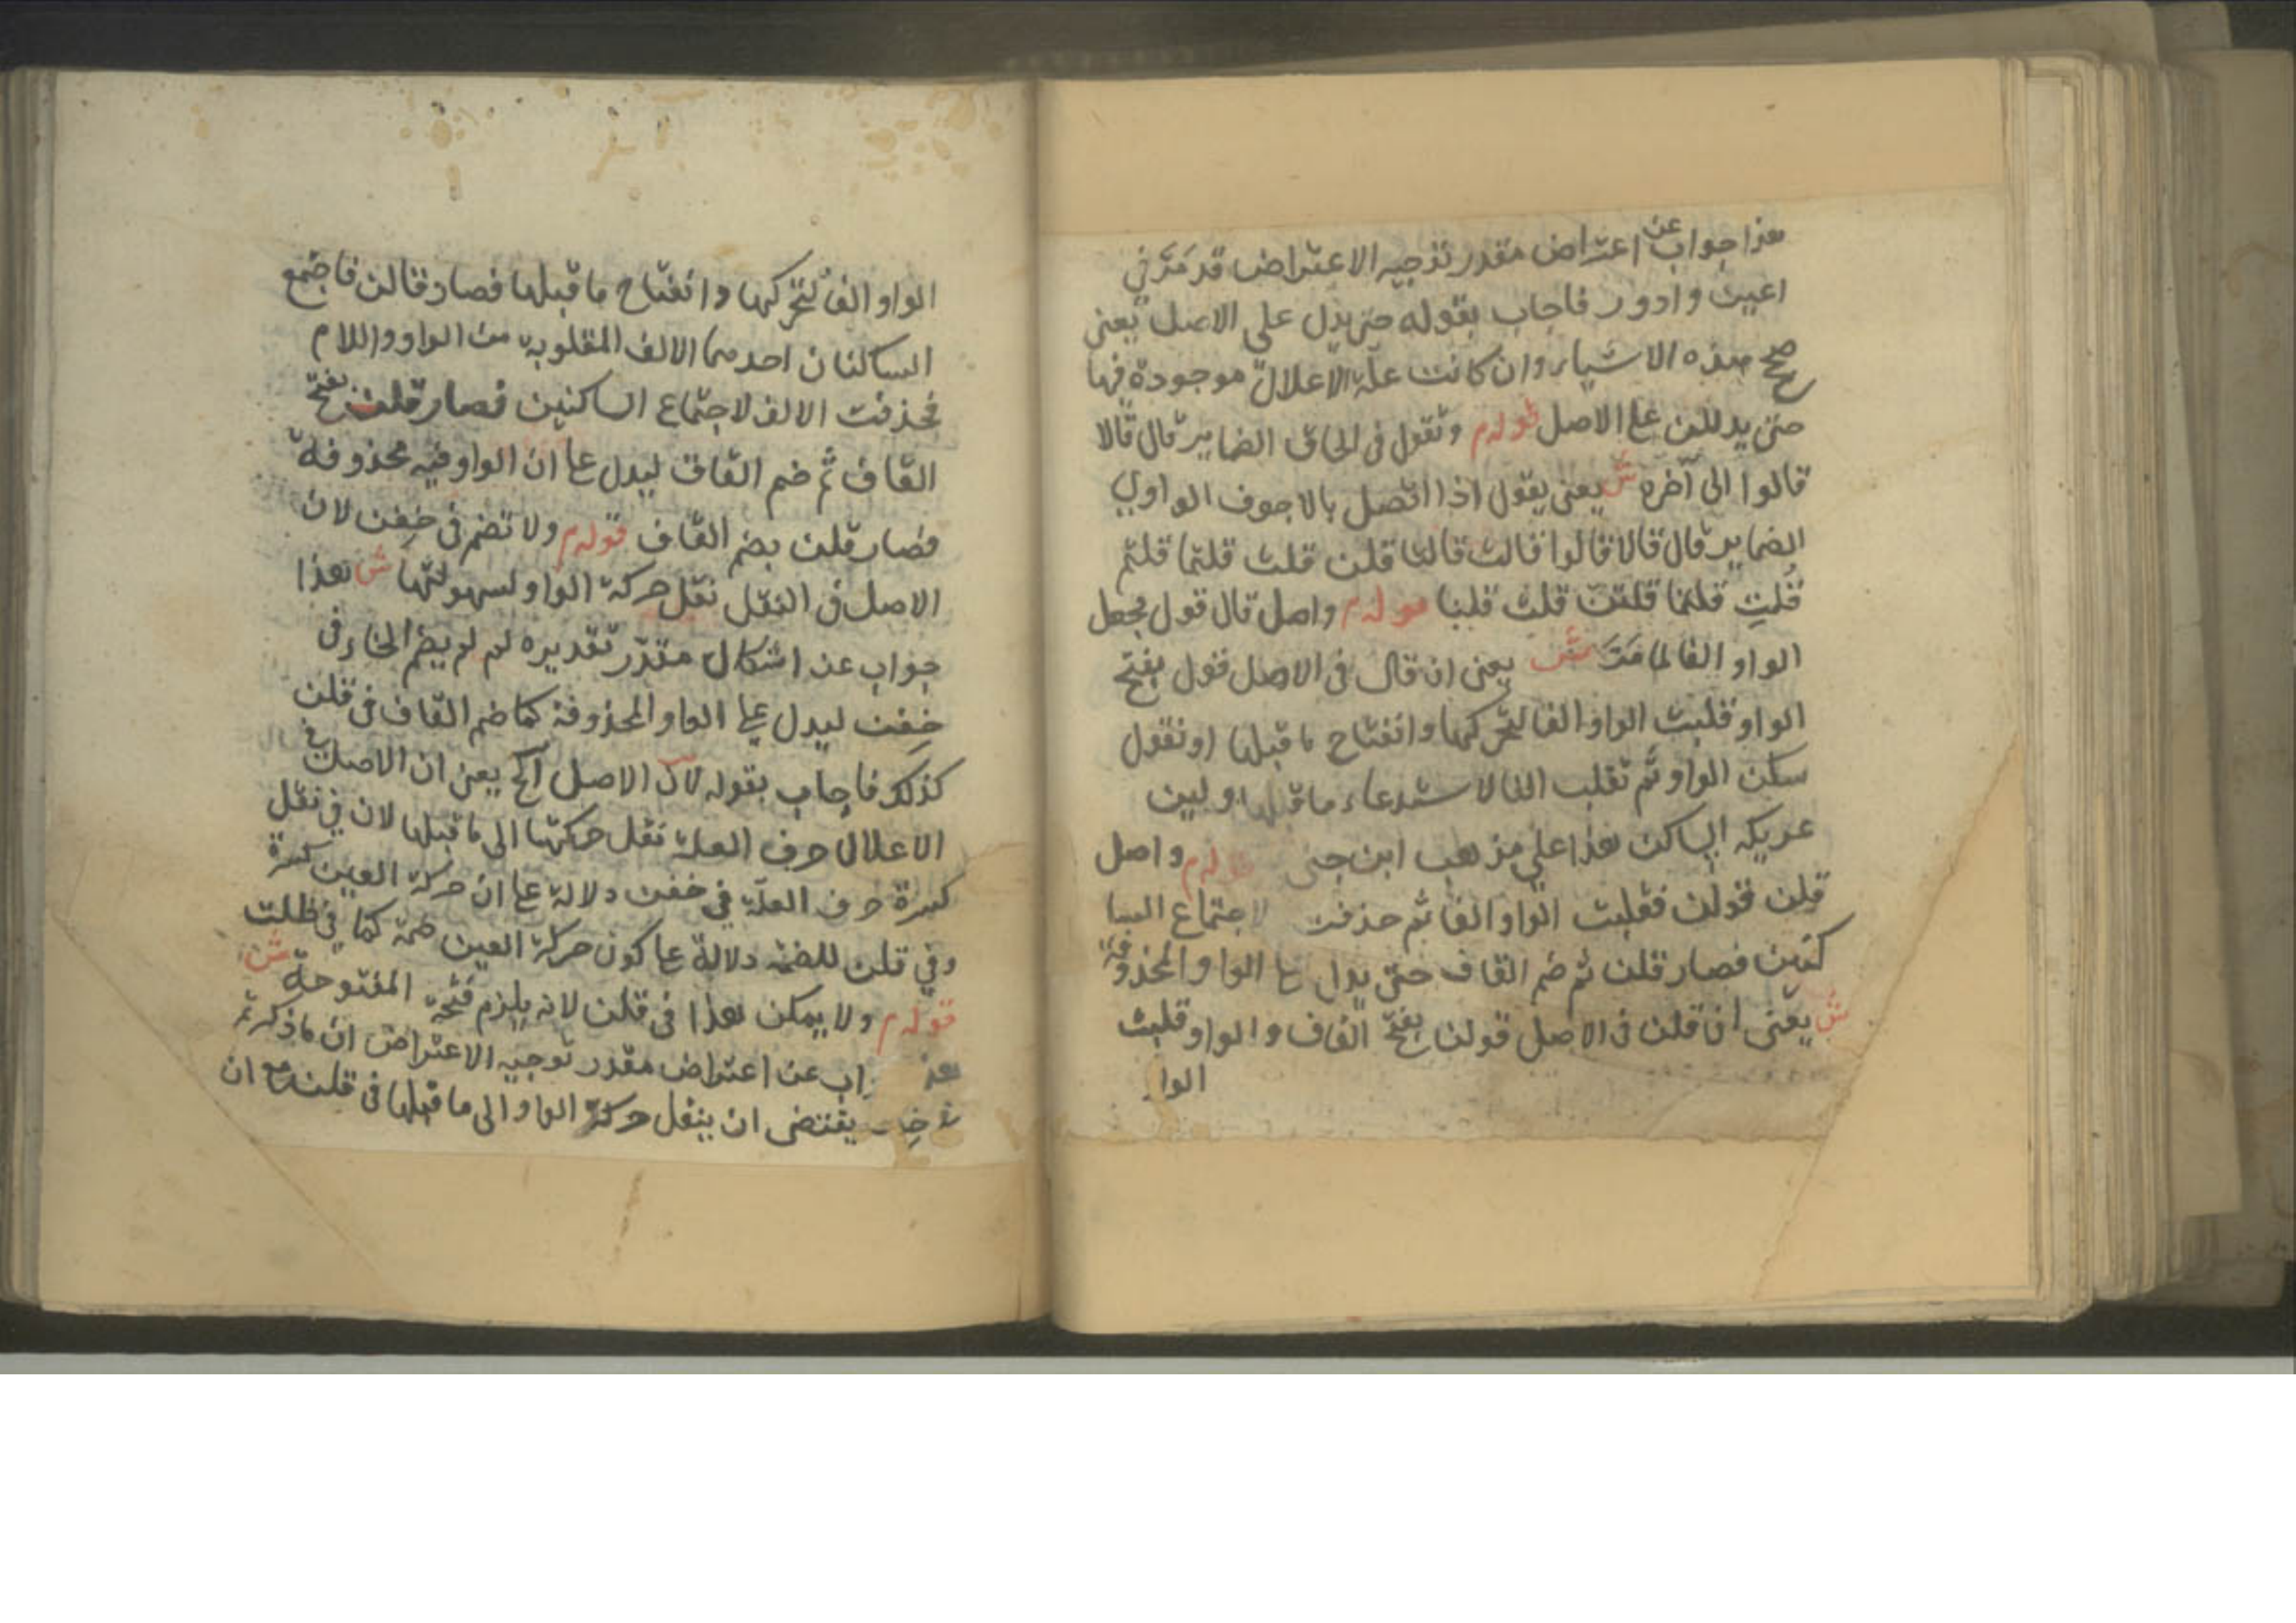 هذا جواب عن اعتراض مقدر توجيه الاعتراض قد مَرّ في
اعين وادور فاجاب بقوله حتى يدل على الاصل يعنى
صح هذه الاشياء وان كانت علّة الاعلال موجودة فيها
حتى يدللن على الاصل قوله م وتقول فى الحاق الضماير قال قالا
قالوا الى آخره ش يعنى يقول اذا اتصل بالاجوف الواوي
الضماير قال قالا قالوا قالت قالتا قلن قلت قلتما قلتم
قُلتِ قلتما قلتنّ قلت قلنا قوله م واصل قال قول فجعل
الواو الفا لما مَرَّ ش يعنى ان قال فى الاصل قول بفتح
الواو قلبت الواو الفا لتحركها وانفتاح ما قبلها او نقول
سكن الواو ثم تقلب الفا لاستدعاء ما قبلها ولين
عريكه الساكن هذا على مذهب ابن جنى قوله م واصل
قلن قولن فقلبت الواو الفا ثم حذفت لاجتماع السا
كنين فصار قلن ثم ضم القاف حتى يدل على الواو المحذوفة
ش يعنى ان قلن فى الاصل قولن بفتح القاف والواو قلبت
الواو
الواو الفاً لتحركها وانفتاح ما قبلها فصار قالن فاجتمع
الساكنان احدهما الالف المقلوبة من الواو واللام
فحذفت الالف لاجتماع الساكنين فصار قلن بفتح
القاف ثم ضم القاف ليدل على ان الواو فيه محذوفة
فصار قلن بضم القاف قوله م ولا تضم فى خِفن لان
الاصل فى النقل نقل حركة الواو لسهولتها ش هذا
جواب عن اشكال مقدّر تقديره لم لم يضم الخاء فى
خِفن ليدل على الواو المحذوفة كما ضم القاف فى قلن
كذلك فاجاب بقوله لان الاصل الخ يعنى ان الاصل في
الاعلال حرف العلة نقل حركتها الى ما قبلها لان في نقل
كسرة حرف العلّة في خفن دلالة على ان حركة العين كسرة
وفي قلن للضمة دلالة على كون حركة العين ضمة كما في ظلت
قوله م ولا يمكن هذا فى قلن لانه يلزم فتحة المفتوحة ش
اب عن اعتراض مقدر توجيه الاعتراض ان ما ذكرتم
يقتضى ان ينقل حركة الواو الى ما قبلها فى قلن مع ان